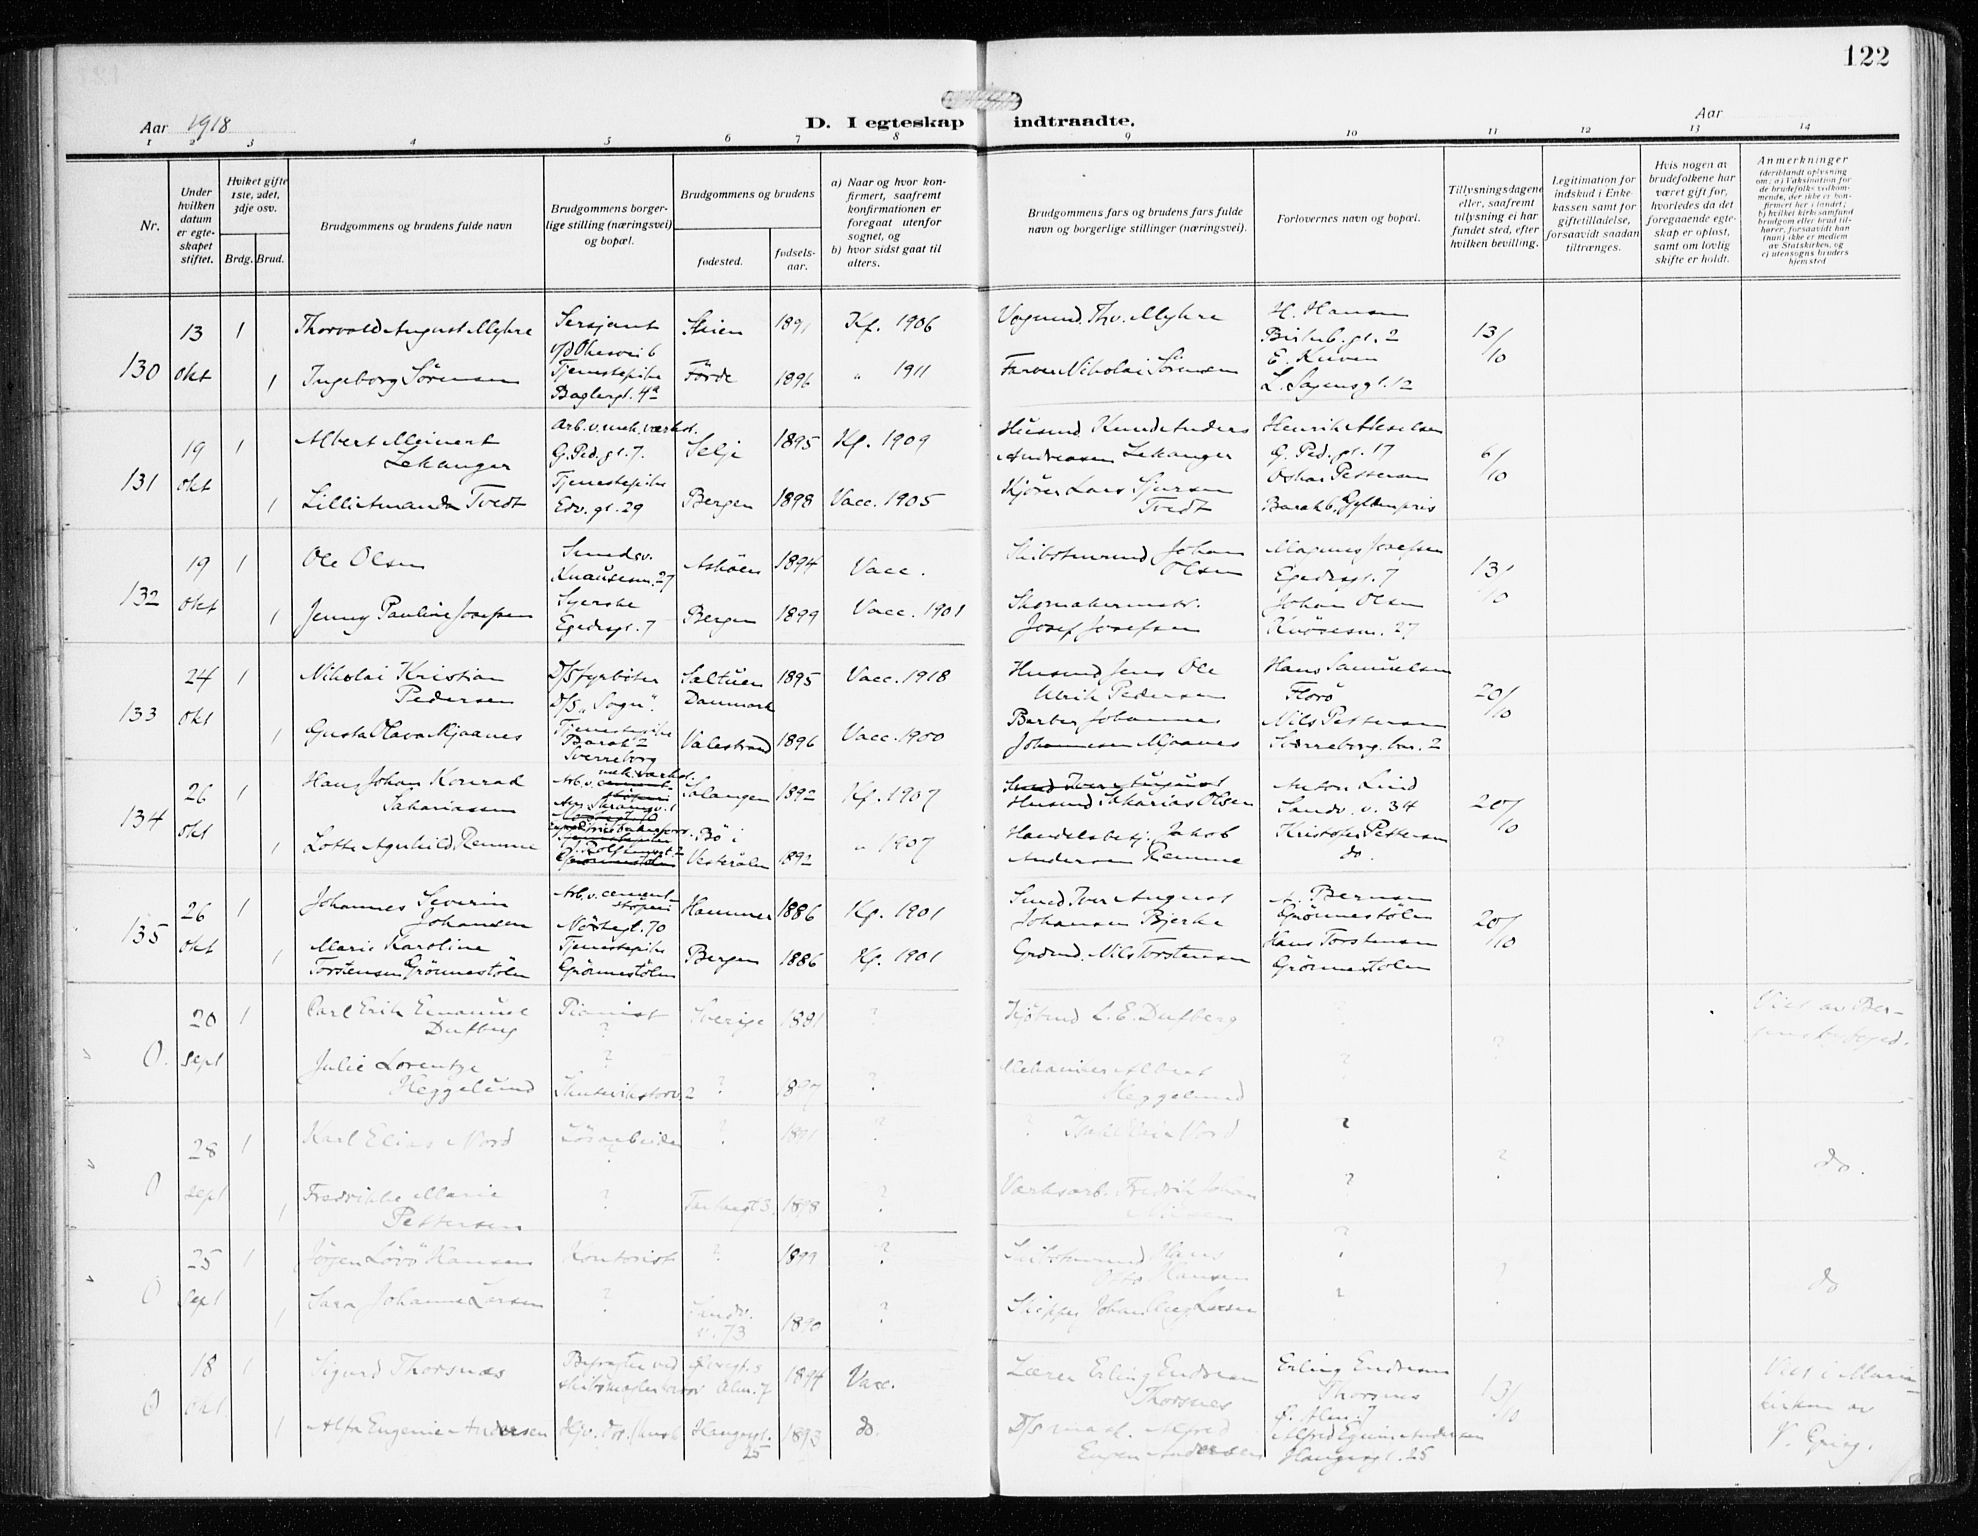 122
Aar 1918
D. I egteskap indtraadte.
Aar
1 2 3 4 5 6 7 8 9 10 11 12 13 14
Nr.
Under hvilken datum er egteskapet stiftet.
Hvilket gifte 1ste, 2det, 3dje osv.
Brdg. Brud.
Brudgommens og brudens fulde navn
Brudgommens borgerlige stilling (næringsvei) og bopæl.
Brudgommens og brudens
fødested.
fødselsaar.
a) Naar og hvor konfirmert, saafremt konfirmationen er foregaat utenfor sognet, og
b) hvor sidst gaat til alters.
Brudgommens fars og brudens fars fulde navn og borgerlige stillinger (næringsvei).
Forlovernes navn og bopæl.
Tillysningsdagene eller, saafremt tillysning ei har fundet sted, efter hvilken bevilling.
Legitimation for indskud i Enkekassen samt for giftetilladelse, forsaavidt saadan tiltrænges.
Hvis nogen av brudefolkene har været gift før, hvorledes da det foregaaende egteskap er opløst, samt om lovlig skifte er holdt.
Anmerkninger
(deriblandt oplysning om: a) Vaksination for de brudefolks vedkommende, der ikke er konfirmert her i landet; b) hvilket kirkesamfund brudgom eller brud tilhører, forsaavidt han (hun) ikke er medlem av Statskirken, og c) utensogns bruders hjemsted
130 13 okt 1 Thorvald August Myhre Sersjant Skien 1891 Kf. 1906 Vognmd. Thv. Myhre H. Hansen 13/10
gt. 2
E. Kuven
1 Ingeborg Sörensen Tjenestepike Förde 1896 " 1911 Farver Nikolai Sörensen L. Sagensgt. 12
Baglergt. 4a
131 19 okt 1 Albert Meinert Lekanger Arb. v. mek. værkst. Selje 1895 Kf. 1909 Husmd. Knud Anders Henrik Akselsen 6/10
G. Ped. gt. 7. Andreasen Lekanger G. Ped. gt. 17
1 Lilli Amanda Tvedt Tjenestepike Bergen 1898 Vacc. 1905 Kjører Lars Sjursen Tvedt Oskar Pettersen
Edv. gt. 29 Barak 6, Gyldenpris
132 19 okt 1 Ole Olsen Smedsv. Askøen 1894 Vacc. Skibstmrmd Johan Olsen Magnus Josefsen 13/10
Knausesm. 27 Egedesgt. 7
1 Jenny Pauline Josefsen Syerske Bergen 1899 Vacc. 1901 Skomakermstr. Josef Josefsen Johan Olsen
Egedesgt. 7 Knösesm. 27
133 24 okt 1 Nikolai Kristian Pedersen D/S fyrbøter Danmark 1895 Vacc. 1918 Husmd Jens Ole Ulrik Pedersen Hans Samuelsen 20/10
D/S "Sogn". Florö
1 Gusta Olava Mjaanes Tjenestepike Valestrand 1896 Vacc. 1900 Barber Johannes Johannesen Mjaanes Nils Pettersen
Barak 2 Sverreborg Sverreborg bar. 2
134 26 okt 1 Hans Johan Konrad Sakariassen Arb. v. mek. værkst. Salangen 1892 Kf. 1907 Husmd Sakarias Olsen Anton Lind 20/10
Sandv. v. 34
1 Lotte Agnhild Remme Bö i Vesterålen 1892 " 1907 Handelsbetj. Jakob Andersen Remme Kristofer Pettersen
do.
135 26 okt 1 Johannes Severin Johansen Arb. v. cementstöperi Hammer 1886 Kf. 1901 Smed Iver August Johansen Bjerke A. Bernsen 20/10
Nöstegt. 70 Grönnestölen
1 Marie Karoline Torstensen, Grönnestölen Tjenestepike Bergen 1886 Kf. 1901 Grdmd. Nils Torstensen Hans Torstensen
Grönnestölen Grönnestölen
0. 20 sept 1 Carl Erik Emanuel Pianist Sverige 1881 ? Kjöbmd L. E. Dufberg ? ? Viet av
Julie Lorentze Heggelund ? Skuteviktorv. 2 ? 1897 ? Mekaniker Albert Heggelund ?
0 28 sept 1 Karl Elias Nord Lösarbeider ? ? ? Nord ? ? do.
1 Fredrikke Marie Pettersen ? 1898 ? Værksarb. Fredrik Johan ?
0 25 sept 1 Jörgen Lövö Hansen Kontorist ? 1899 ? Skibstmrmd Hans Otto Hansen ? ? do
1 Sara Johanne Larsen ? Sandv. v. 73 1890 ? Skipper Johan Larsen ?
0 18 okt 1 Sigurd Thorsnæs 1894 Vacc. Lærer Erling Endresen Thorsnes Erling Endresen Thorsnes 13/10 Viet i Mariakirken av
1 Alfa Eugenie Andersen Haugesgt. 25 1893 do. D/S mask. Alfred Eugen Andersen Alfred Eugen Andersen V. Grieg.
Haugesgt. 25